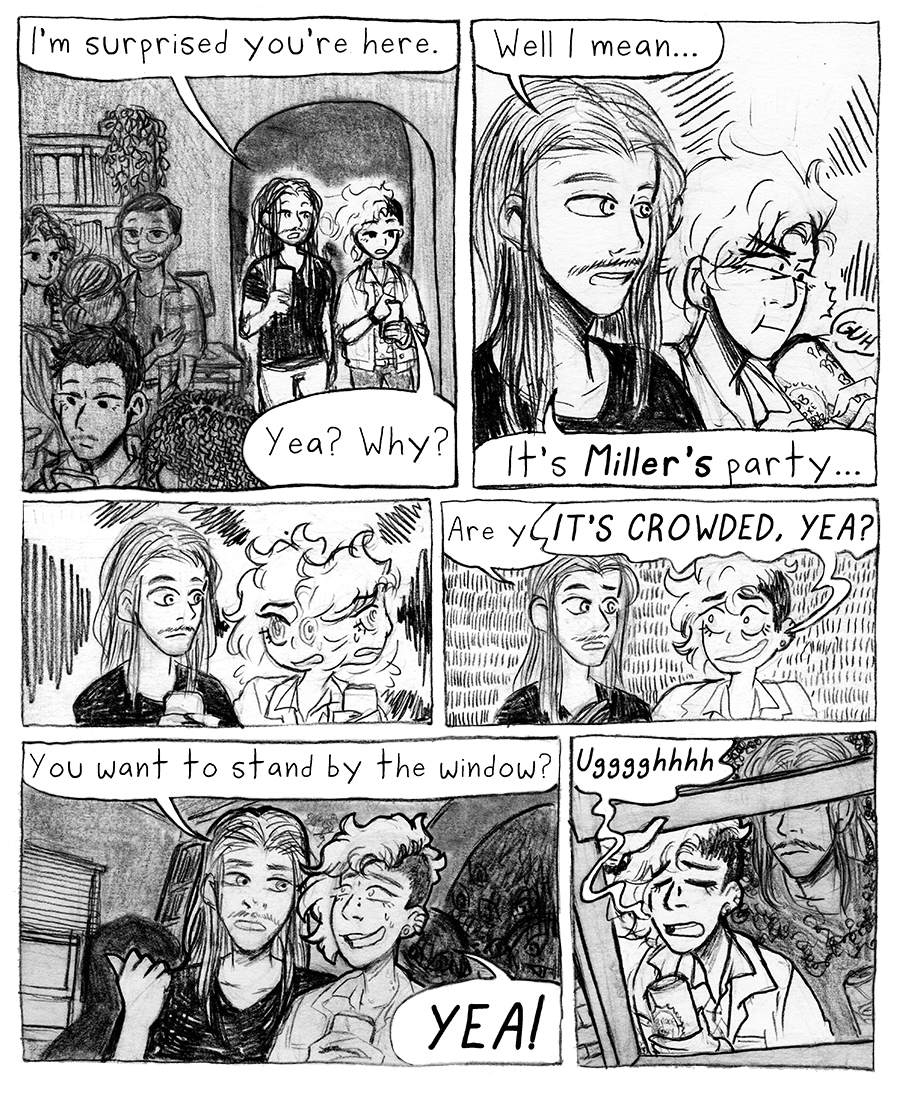 I'm surprised you're here.
Yea? Why?
Well I mean...
GUH
It's Miller's party...
Are y
IT'S CROWDED, YEA?
You want to stand by the window?
YEA!
Uggggghhhh